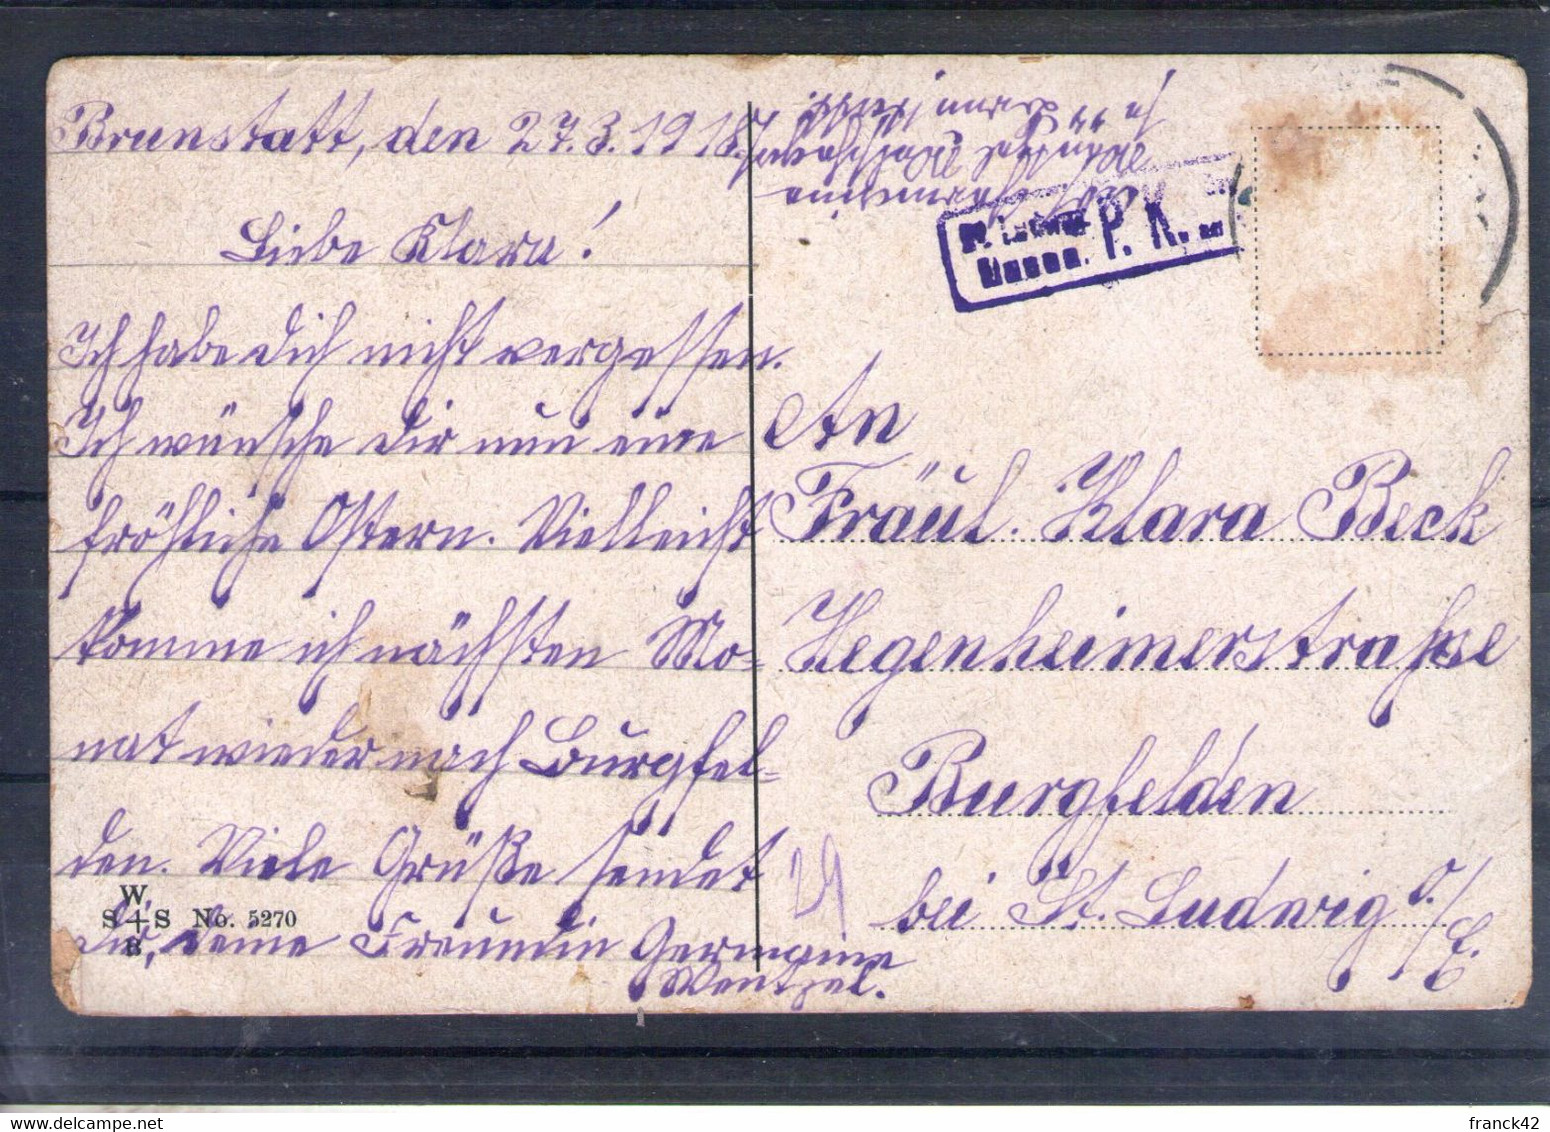 Brunstatt, den 27.3.1918.
Liebe Klara!
Ich habe dich nicht vergessen.
Ich wünsche dir nun eine
fröhliche Ostern. Vielleicht
komme ich nächsten Mo-
nat wieder nach Burgfel-
den. Viele Grüße sendet
dir, deine Freundin Germaine
Wentzel.
W
S S No. 5270
B
P. K.
An
Fräul. Klara Beck
Hegenheimerstraße
Burgfelden
bei St. Ludwig O/E.
29
franck42